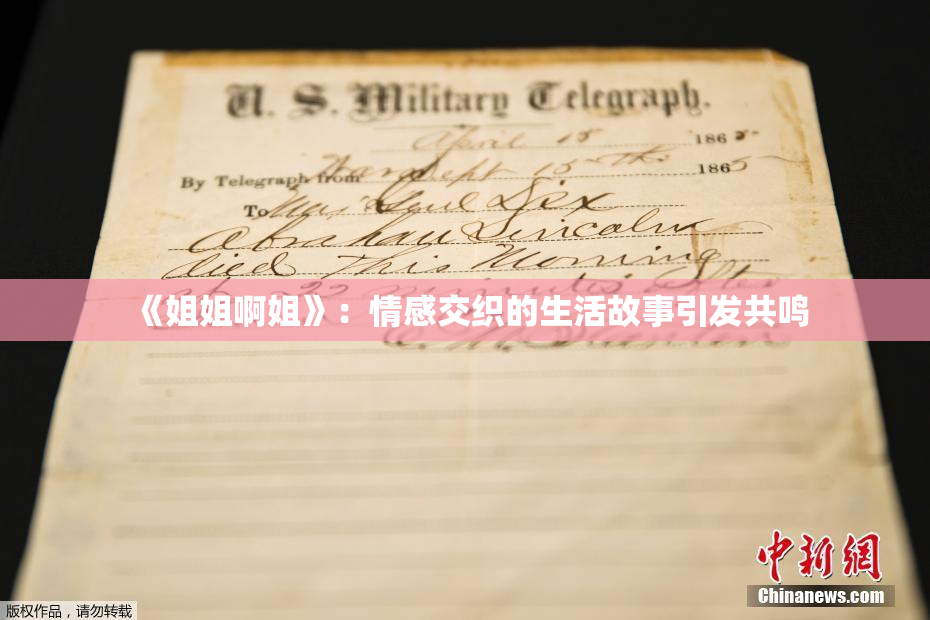 U. S. Military Telegraph.
April 15 1865
By Telegraph from War Dept 15th 1865
To Maj Genl Dix
Abraham Lincoln
died This Morning
at 22 minutes after
《姐姐啊姐》：情感交织的生活故事引发共鸣
E. M. Stanton
中新网
Chinanews.com
版权作品，请勿转载